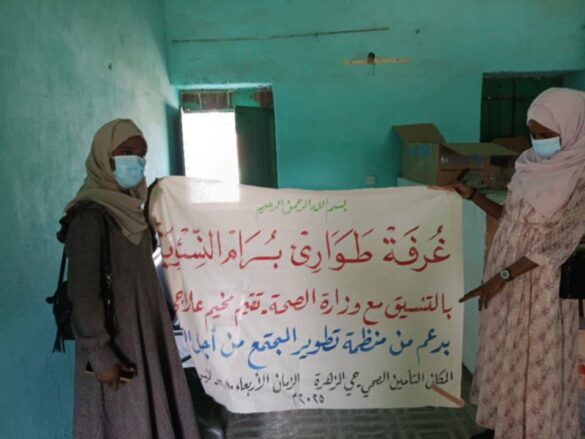 بسم الله الرحمن الرحيم
غُرفَة طَوَارِئ بُـرَام النِّسْـ
بالتنسيق مع وزارة الصحة - تقيم مخيم علاجي
بدعم من منظمة تطوير المجتمع من أجل
المكان التأمين الصحي حي الزهرة الزمان الأربعاء
٢٠٢٥م